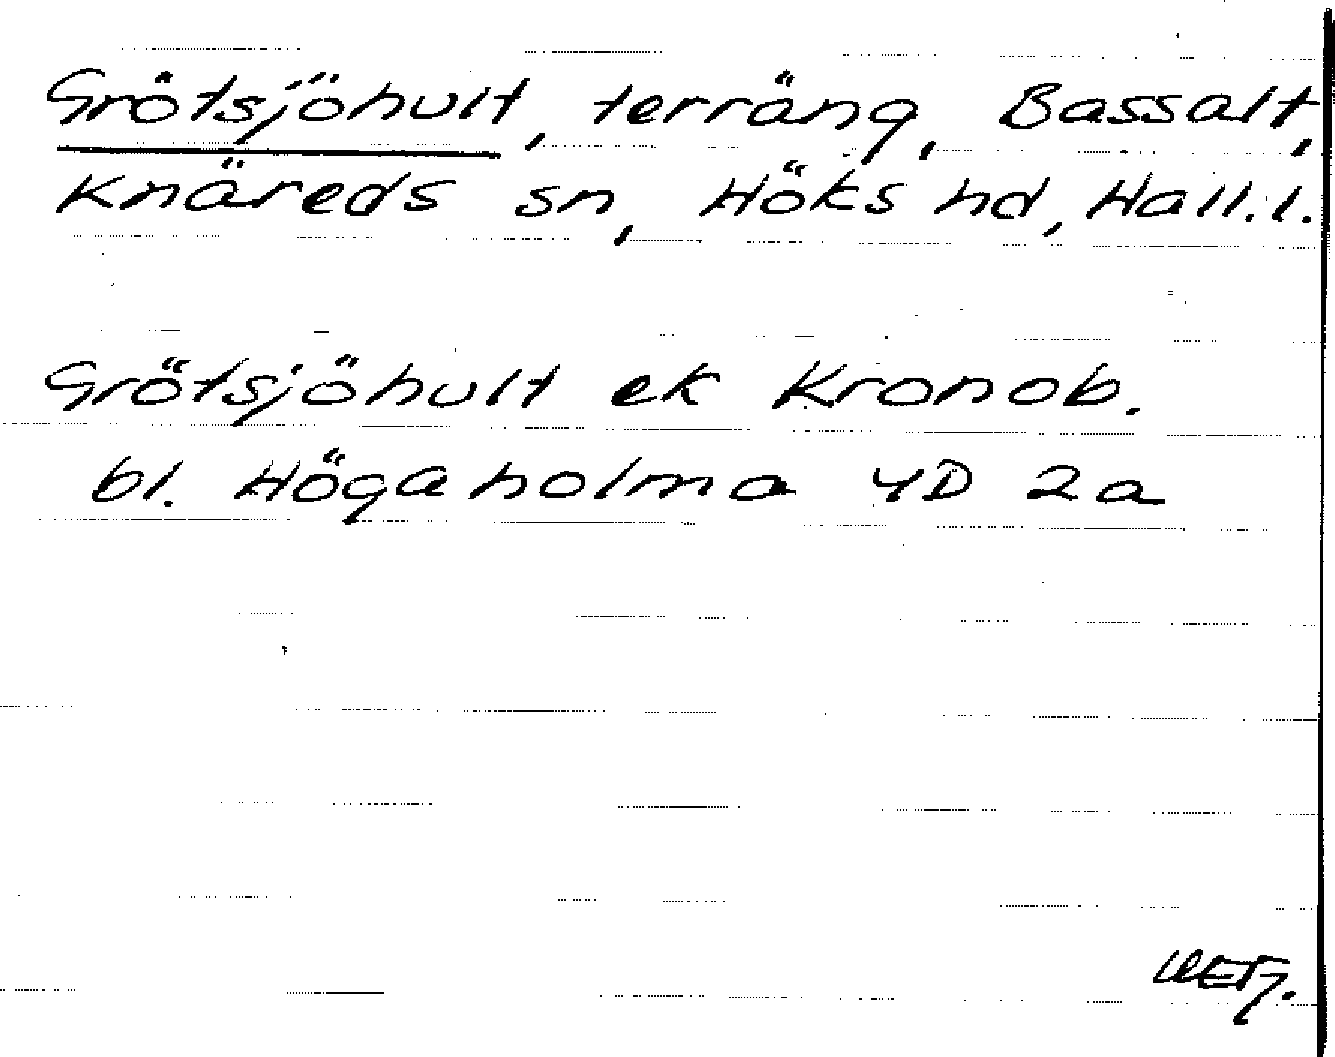 Grötsjöhult, terräng, Bassalt,
Knäreds sn, Höks hd, Hall. l.
Grötsjöhult ek Kronob.
bl. Högaholma 4D 2a